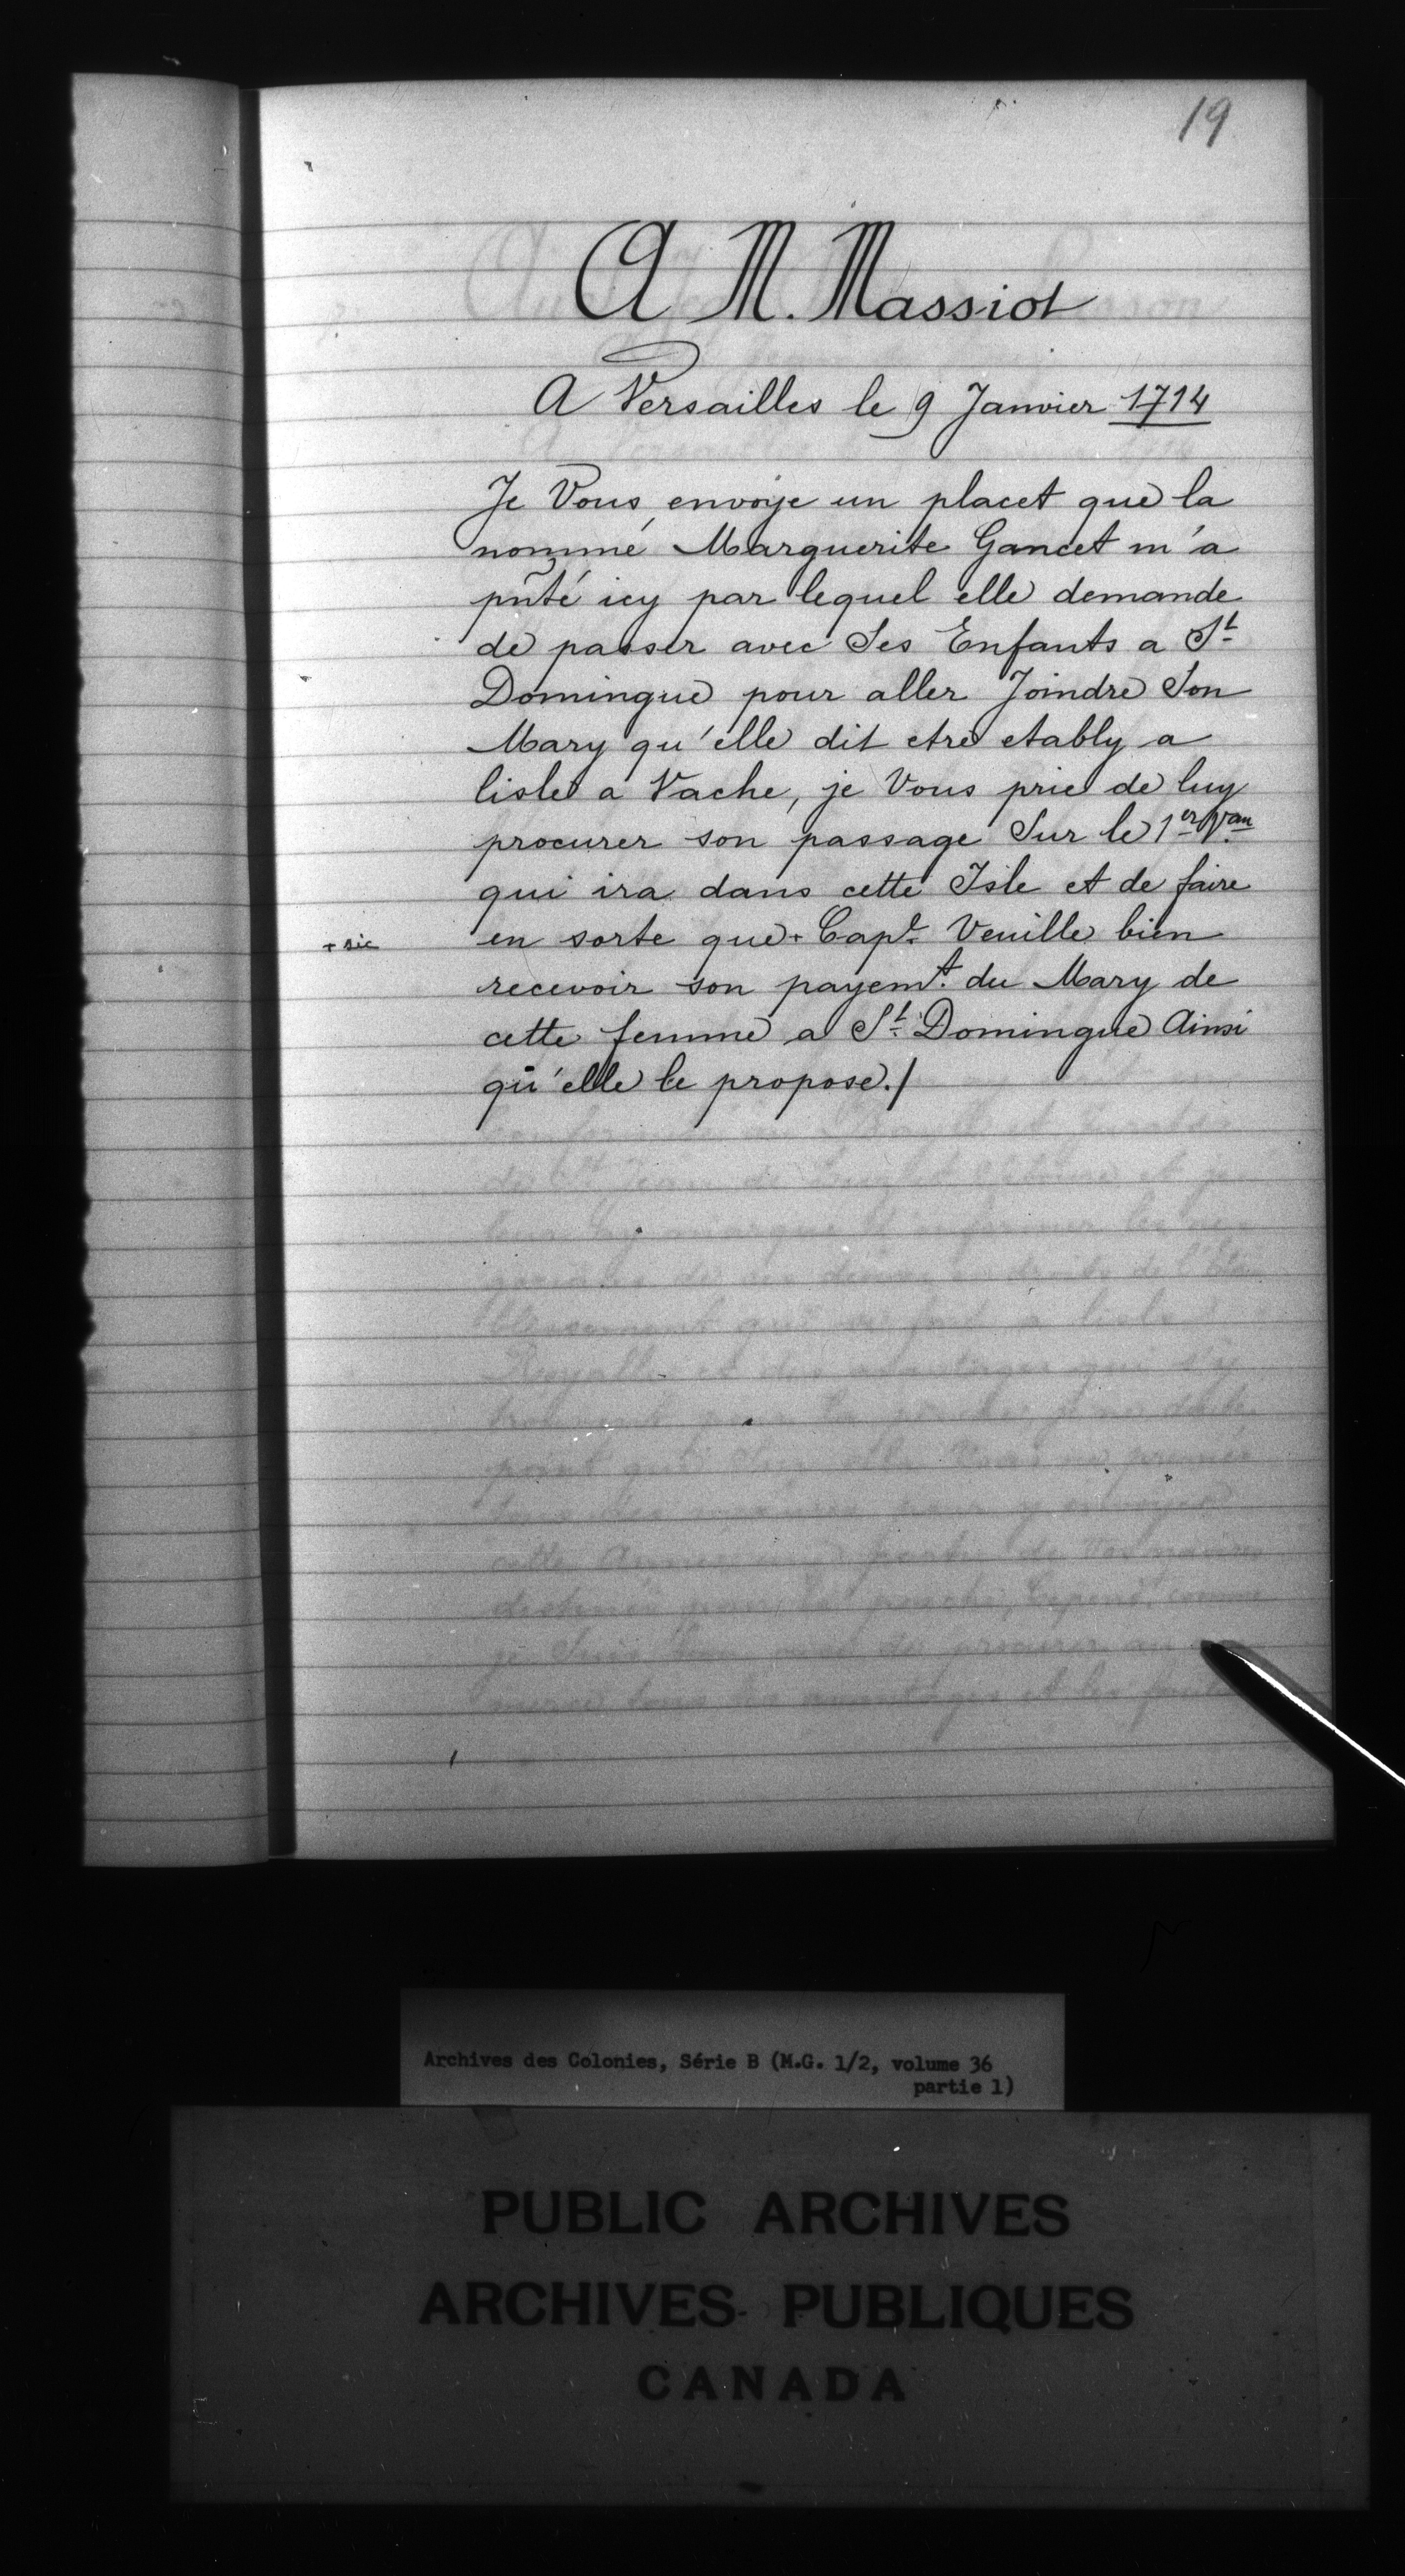 19
A M. Massiot
A Versailles le 9 Janvier 1714
Je Vous envoye un placet que la
nommé Marguerite Gancet m'a
pñté icy par lequel elle demande
de passer avec Ses Enfants a St
Domingue pour aller Joindre Son
Mary qu'elle dit etre etably a
lisle a Vache, je Vous prie de luy
procurer son passage Sur le 1er Vau
qui ira dans cette Isle et de faire
+ sic en sorte que + Capt. Veuille bien
recevoir son payemt. du Mary de
cette femme a St. Domingue Ainsi
qu'elle le propose./
Archives des Colonies, Série B (M.G. 1/2, volume 36
partie 1)
PUBLIC ARCHIVES
ARCHIVES PUBLIQUES
CANADA